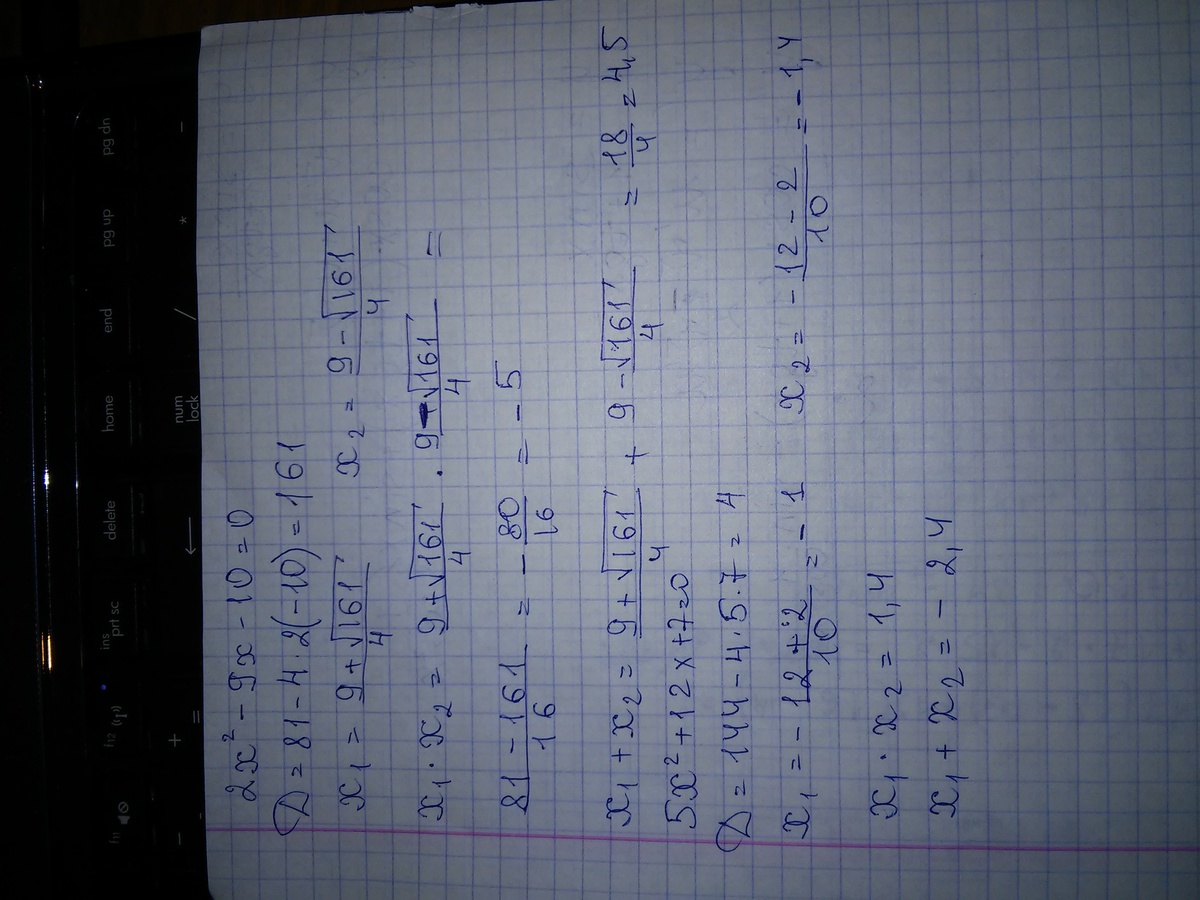 2x² - 9x - 10 = 0
D = 81 - 4·2(-10) = 161
x₁ = (9+√161)/4 x₂ = (9-√161)/4
x₁·x₂ = (9+√161)/4 · (9-√161)/4 =
(81-161)/16 = -80/16 = -5
x₁+x₂ = (9+√161)/4 + (9-√161)/4 = 18/4 = 4,5
5x²+12x+7=0
D = 144 - 4·5·7 = 4
x₁ = (-12+2)/10 = -1 x₂ = (-12-2)/10 = -1,4
x₁·x₂ = 1,4
x₁+x₂ = -2,4
f11
f12
ins
prt sc
delete
home
end
pg up
pg dn
+
=
←
num
lock
/
*
-